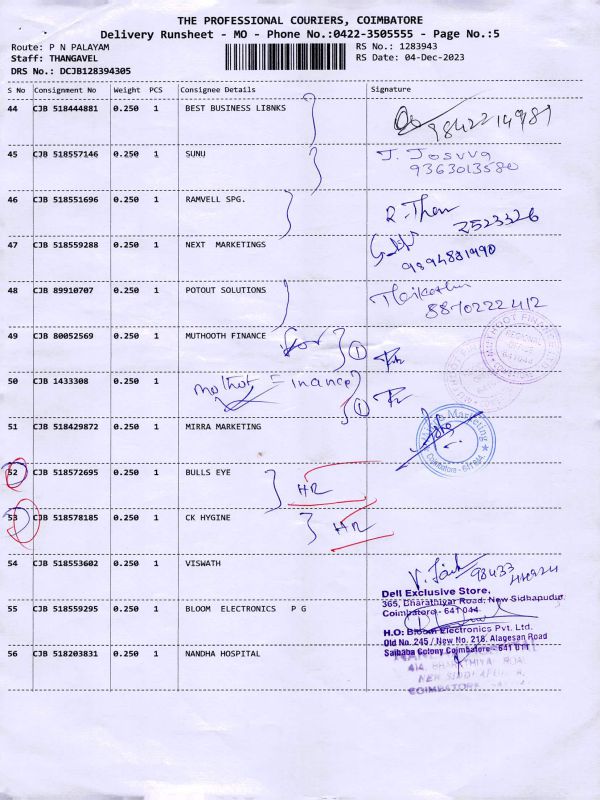 THE PROFESSIONAL COURIERS, COIMBATORE
Delivery Runsheet - MO - Phone No.:0422-3505555 - Page No.:5
Route: P N PALAYAM
RS No.: 1283943
Staff: THANGAVEL
RS Date: 04-Dec-2023
DRS No.: DCJB128394305
S No Consignment No Weight PCS Consignee Details Signature
44 CJB 518444881 0.250 1 BEST BUSINESS LI8NKS
9842214989
45 CJB 518557146 0.250 1 SUNU J. Josuva
9363013580
46 CJB 518551696 0.250 1 RAMVELL SPG. R. Then
2523326
47 CJB 518559288 0.250 1 NEXT MARKETINGS
9894881990
48 CJB 89910707 0.250 1 POTOUT SOLUTIONS
8870222412
49 CJB 80052569 0.250 1 MUTHOOTH FINANCE for 1
50 CJB 1433308 0.250 1 mothot Finance 1
51 CJB 518429872 0.250 1 MIRRA MARKETING
Coimbatore
52 CJB 518572695 0.250 1 BULLS EYE HR
53 CJB 518578185 0.250 1 CK HYGINE HR
54 CJB 518553602 0.250 1 VISWATH 98433
Dell Exclusive Store,
365, Bharathiyar Road, New Sidhapudur
Coimbatore - 641 044
55 CJB 518559295 0.250 1 BLOOM ELECTRONICS P G
H.O: Bloom Electronics Pvt. Ltd.
Old No. 245 / New No. 218, Alagesan Road
Saibaba Colony Coimbatore - 641 011
56 CJB 518203831 0.250 1 NANDHA HOSPITAL
COIMBATORE